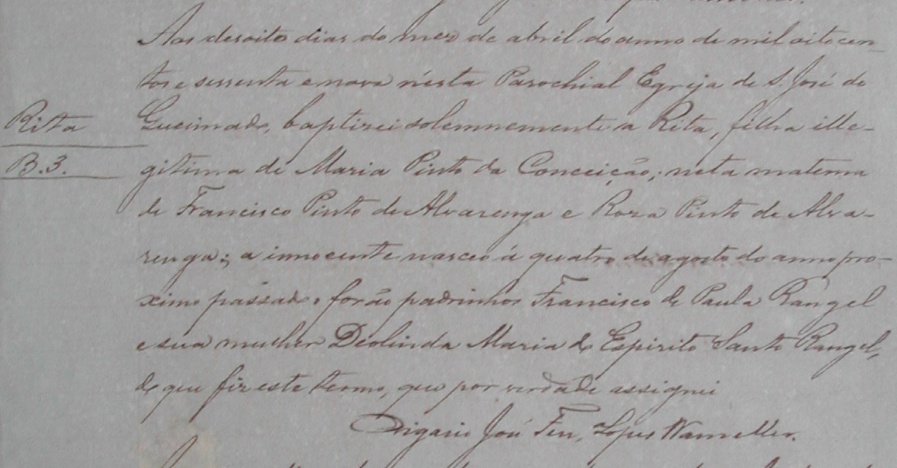 Aos desoito dias do mez de abril do anno de mil oitocen-
tos e sessenta e nove n'esta Parochial Egreja de S. José do
Rita
Queimado, baptizei solemnemente a Rita, filha ille-
B. 3.
gitima de Maria Pinto da Conceição; neta materna
de Francisco Pinto de Alvarenga e Roza Pinto de Alva-
renga; a innocente nasceo á quatro de agosto do anno pro-
ximo passado. forão padrinhos Francisco de Paula Rangel
e sua mulher Deolinda Maria do Espirito Santo Rangel,
do que fiz este termo, que por verdade assignei
Vigario José Lopes